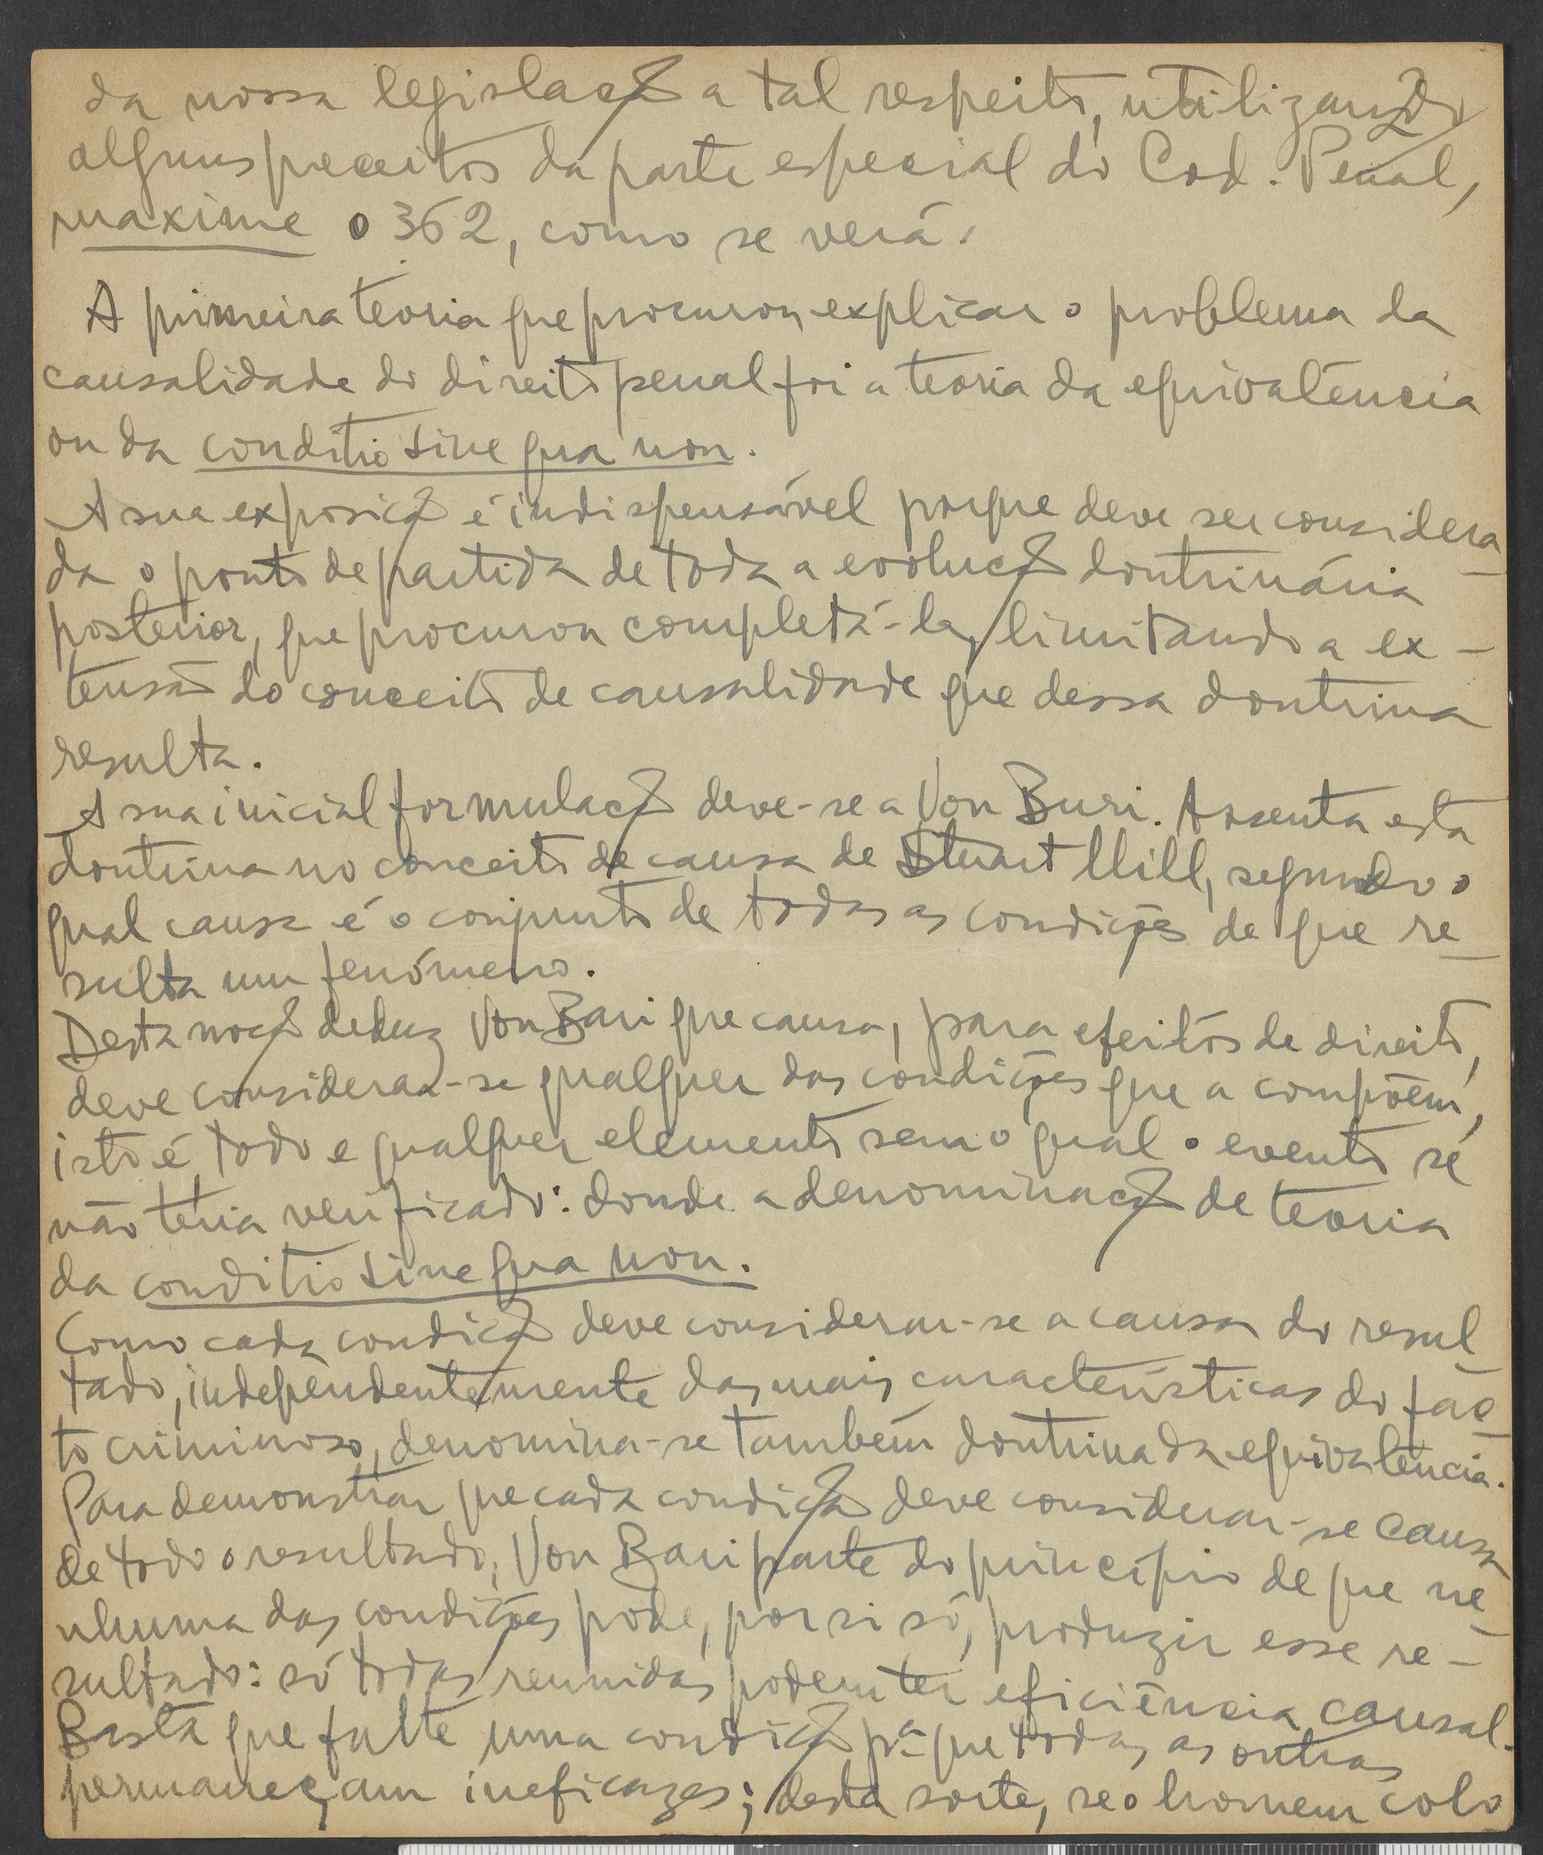 da nossa legislação a tal respeito, utilizando
alguns preceitos da parte especial do Cod. Penal,
maxime o 362, como se verá.
A primeira teoria que procurou explicar o problema da
causalidade do direito penal foi a teoria da equivalência
ou da conditio sine qua non.
A sua exposição é indispensável porque deve ser considera-
da o ponto de partida de toda a evolução doutrinária
posterior, que procurou completá-la, limitando a ex-
tensão do conceito de causalidade que dessa doutrina
resulta.
A sua inicial formulação deve-se a Von Buri. Assenta esta
doutrina no conceito de causa de Stuart Mill, segundo o
qual causa é o conjunto de todas as condições de que re-
sulta um fenómeno.
Desta noção deduz Von Bari que causa, para efeitos de direito,
deve considerar-se qualquer das condições que a compõem,
isto é, todo e qualquer elemento sem o qual o evento se
não teria verificado: donde a denominação de teoria
da conditio sine qua non.
Como cada condição deve considerar-se a causa do resul-
tado, independentemente das mais características do fac-
to criminoso, denomina-se também doutrina da equivalência.
Para demonstrar que cada condição deve considerar-se causa
de todo o resultado, Von Bari parte do princípio de que ne-
nhuma das condições pode, por si só, produzir esse re-
sultado: só todas reunidas podem ter eficiência causal.
Basta que falte uma condição pª que todas as outras
permaneçam ineficazes; desta sorte, se o homem colo